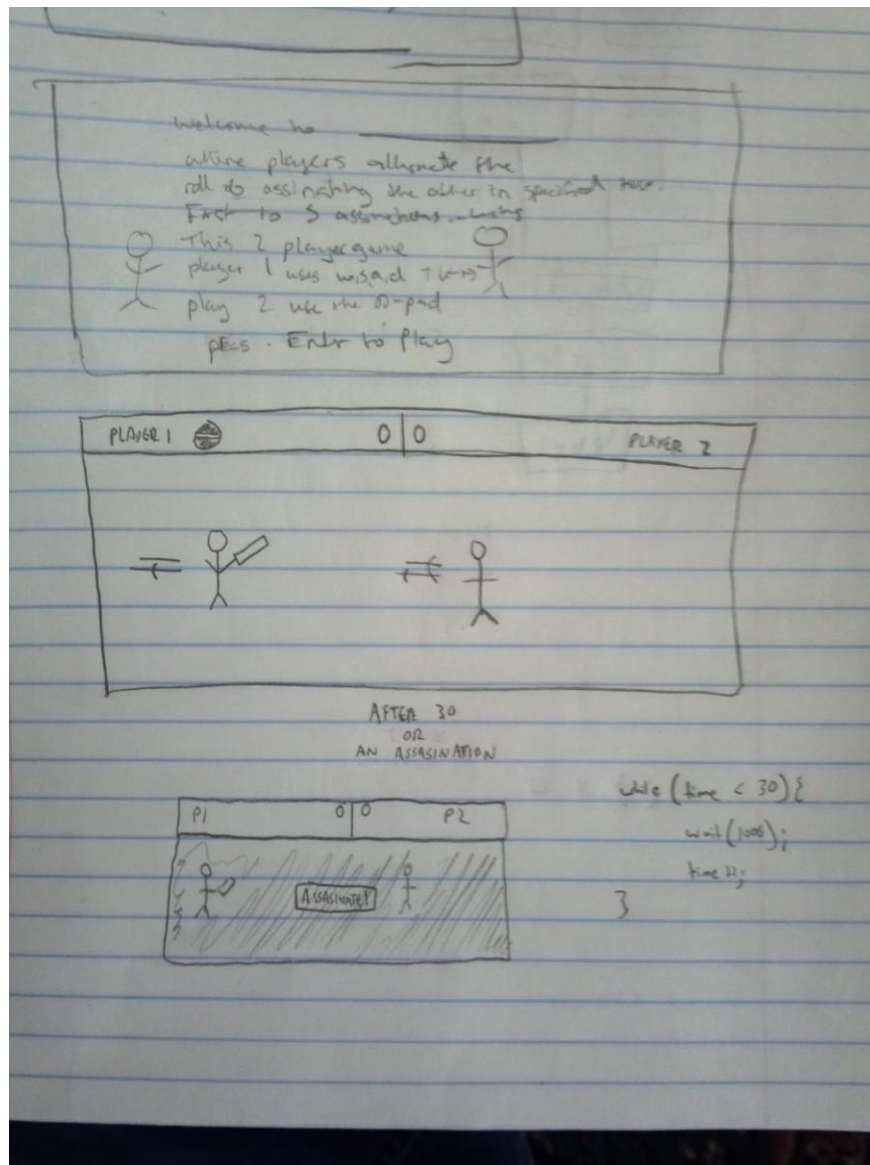 welcome to
where players alternate the
roll of assinating the other in specified
First to 5 assinations wins
This 2 player game
player 1 uses w,s,a,d
play 2 use the D-pad
pEss. Enter to Play
PLAYER 1 0 | 0 PLAYER 2
AFTER 30
OR
AN ASSASINATION
P1 0 | 0 P2
ASSASINATE!
while (time < 30) {
wait(1000);
time ++;
}